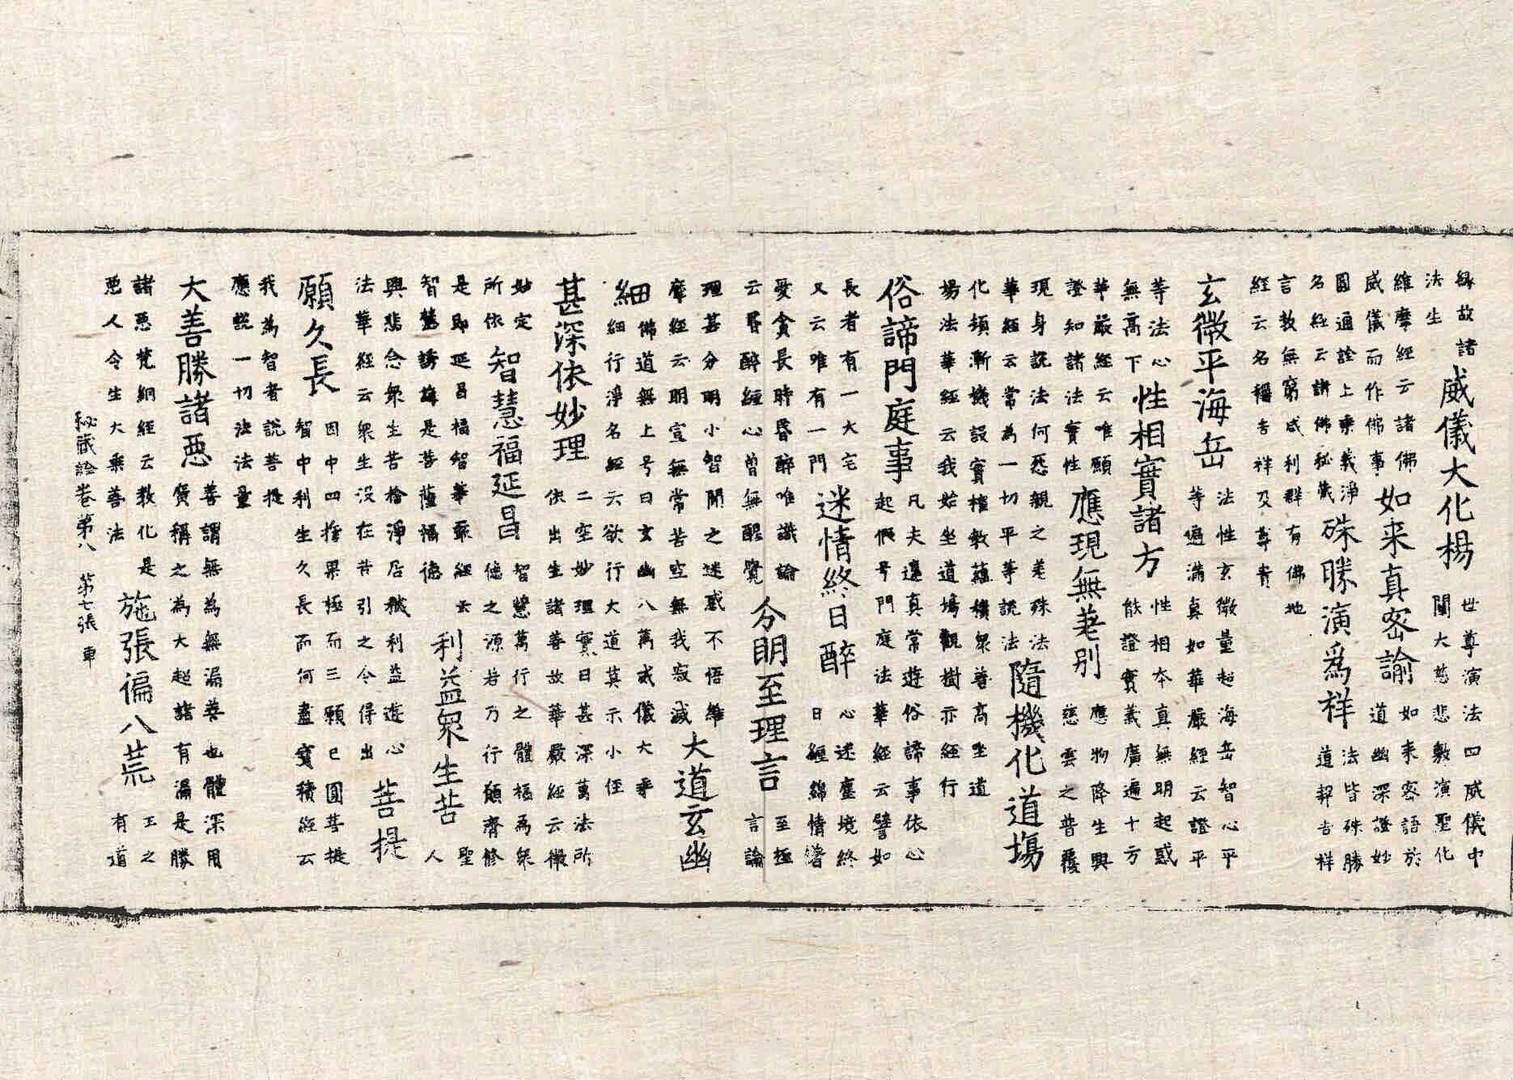 緣故諸
法生
威儀大化揚
世尊演法四威儀中
闡大慈悲敷演聖化
維摩經云諸佛
威儀而作佛事
如来真密諭
如来密語於
道幽深證妙
圓通詮上乘義淨
名經云諸佛秘藏
殊勝演為祥
法皆殊勝
道契吉祥
言教無窮咸利群有佛地
經云名稱吉祥及尊貴
玄微平海岳
法性玄微量起海岳智心平
等遍滿真如華嚴經云證平
等法心
無高下
性相實諸方
性相本真無明起惑
能證實義廣遍十方
華嚴經云唯願
證知諸法實性
應現無差别
應物降生興
慈雲之普覆
現身說法何悉親之差殊法
華經云常為一切平等說法
隨機化道場
化頓漸機設實權教蘊積眾善高坐道
場法華經云我始坐道場觀樹亦經行
俗諦門庭事
凡夫違真常遊俗諦事依心
起假号門庭法華經云譬如
長者有一大宅
又云唯有一門
迷情終日醉
心迷塵境終
日纏綿情眷
愛貪長時昏醉唯識論
云昏醉纏心曾無醒覺
分明至理言
至極
言論
理甚分明小智聞之迷惑不悟維
摩經云明宣無常苦空無我寂滅
大道玄幽
細
佛道無上号曰玄幽八萬威儀大乘
細行淨名經云欲行大道莫示小徑
甚深依妙理
二空妙理實曰甚深萬法所
依出生諸善故華嚴經云微
妙定
所依
智慧福延昌
智慧萬行之體福為眾
德之源若乃行願齊修
是即延昌福智華嚴經云
智慧誘誨是菩薩福德
利益眾生苦
聖
人
興悲念眾生苦捨淨居樂利益遊心
法華經云眾生沒在苦引之令得出
菩提
願久長
因中四接果極而三願已圓菩提
智中利生久長而何盡寶積經云
我為智者說菩提
應說一切法法量
大善勝諸惡
善謂無為無漏善也體深用
廣稱之為大超諸有漏是勝
諸惡梵網經云教化是
惡人令生大乘善法
施張徧八荒
王之
有道
秘藏詮卷第八 第七張 車